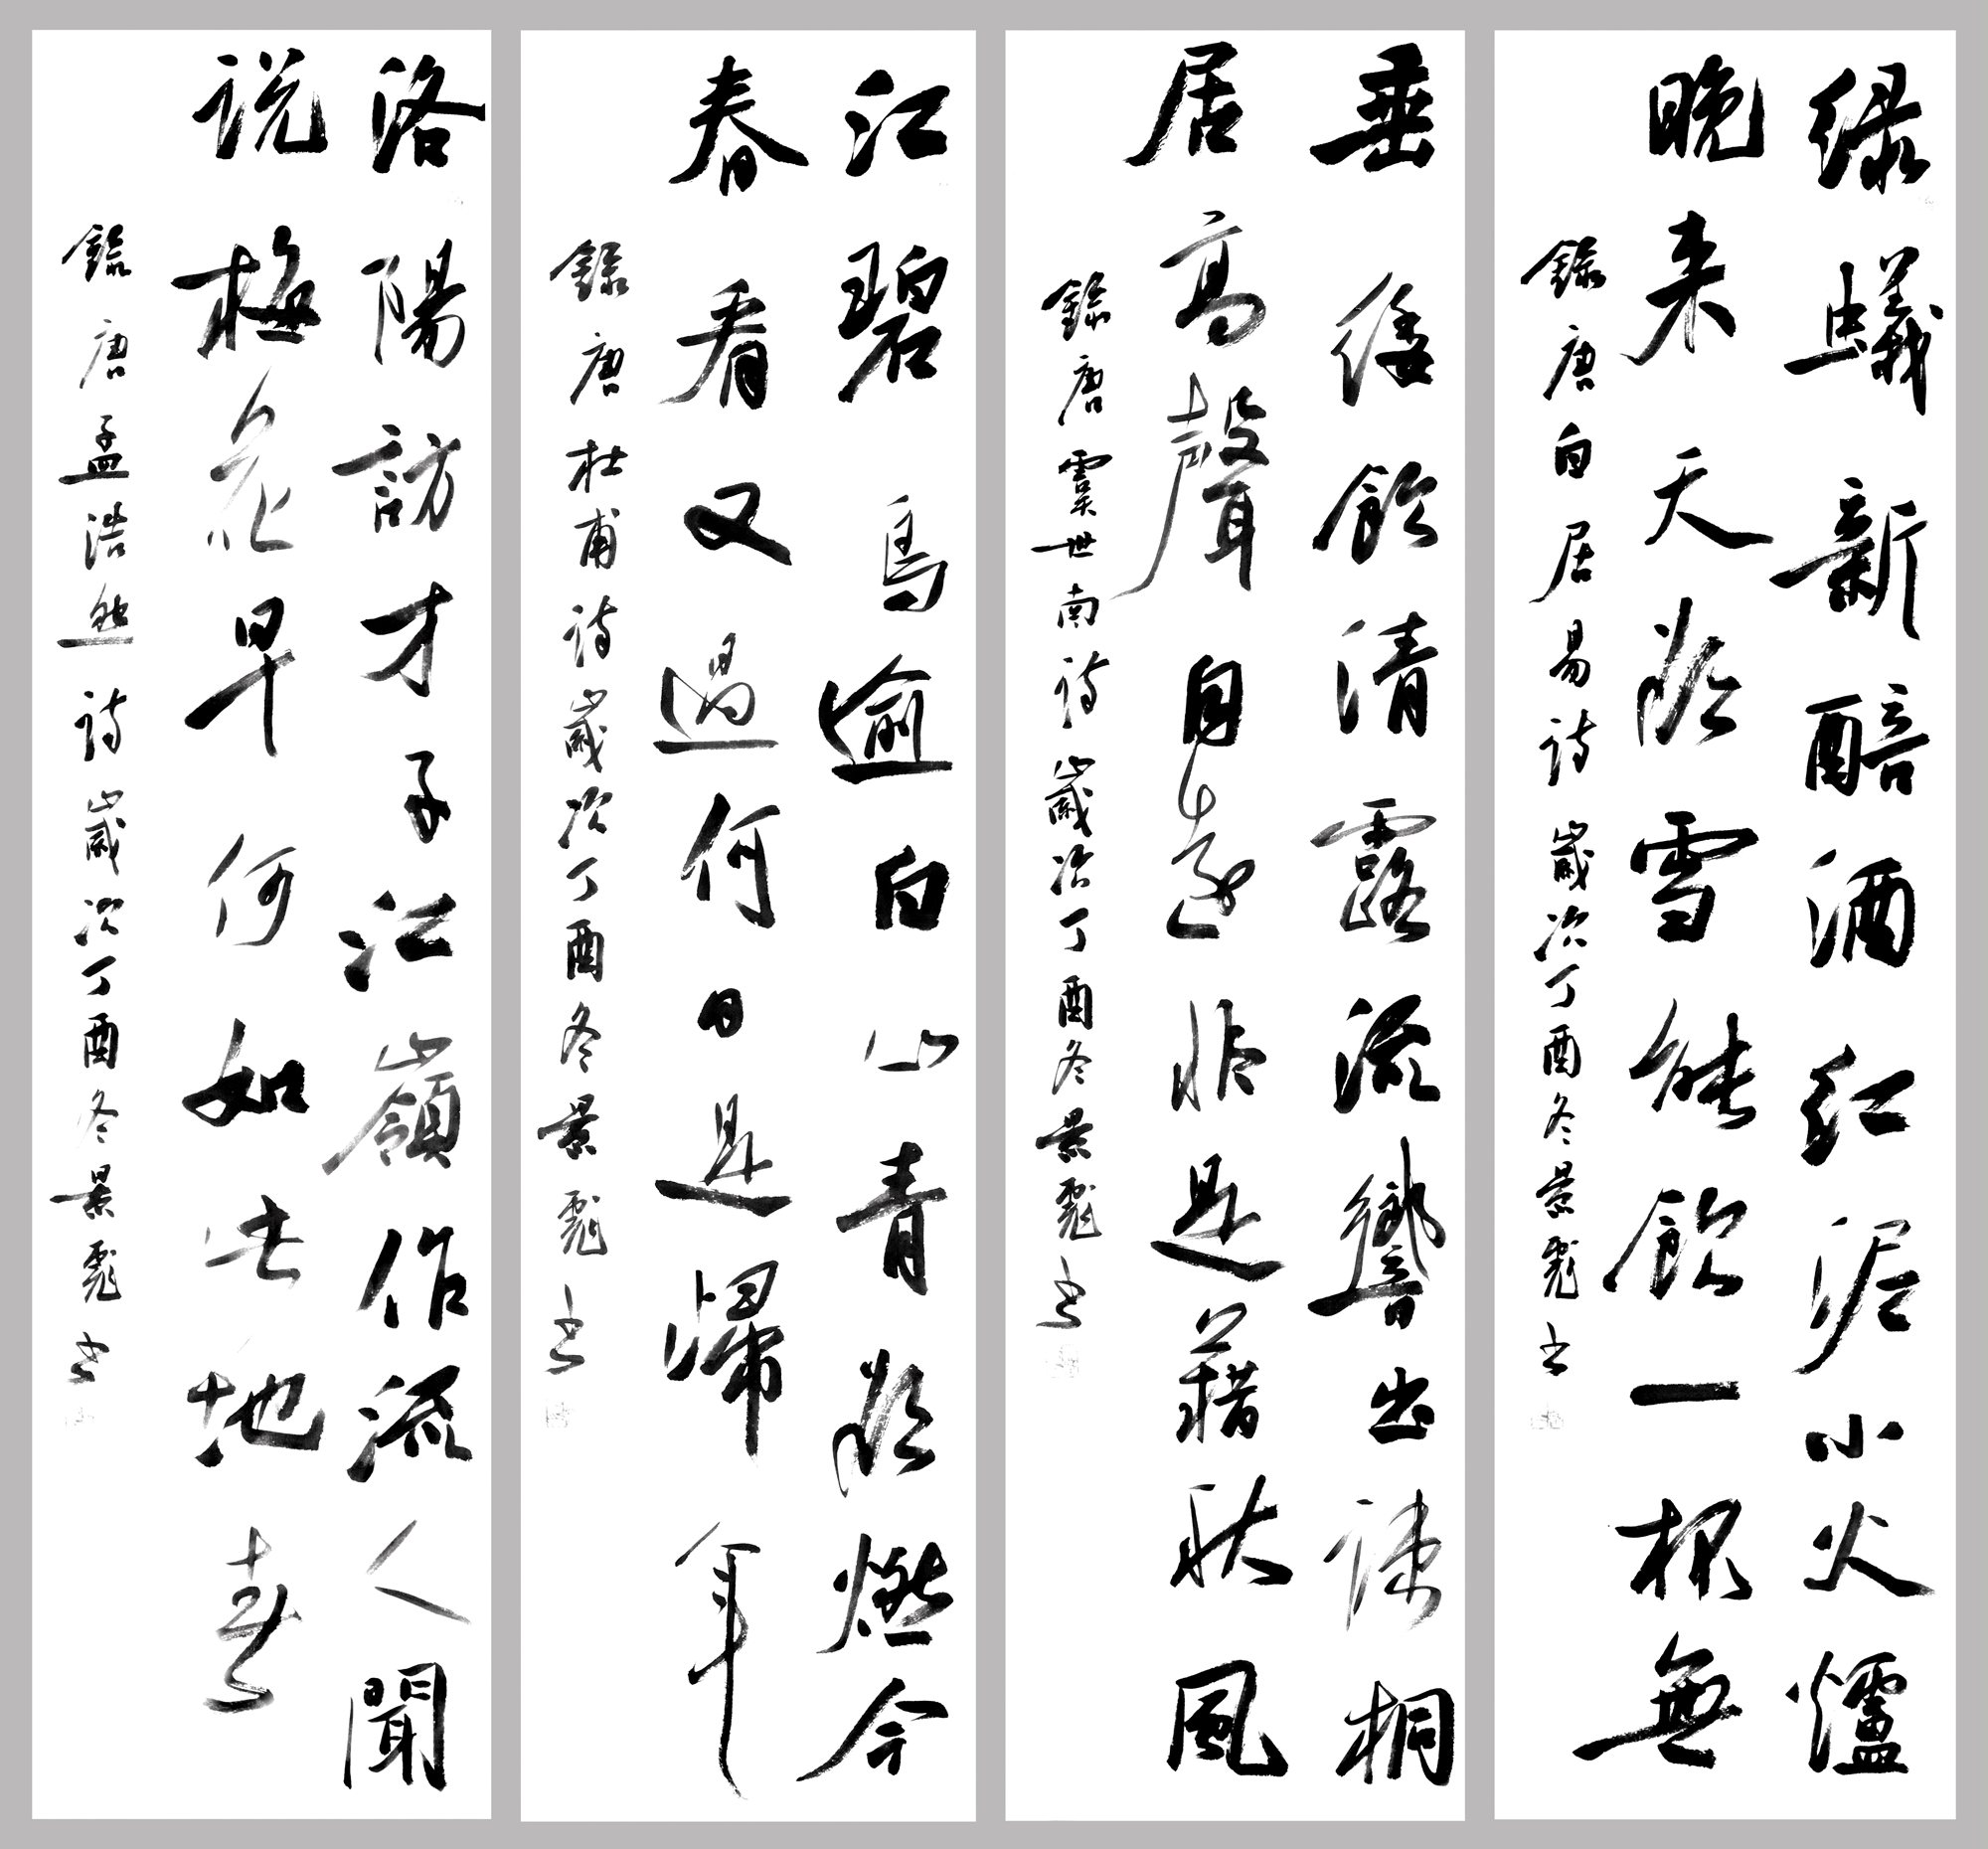 綠蟻新醅酒紅泥小火爐
晚来天欲雪能飲一杯無
錄唐白居易詩歲次丁酉冬景彪書
垂緌飲清露流響出疎桐
居高聲自遠非是藉秋風
錄唐虞世南詩歲次丁酉冬景彪書
江碧鳥逾白山青欲燃今
春看又過何日是歸年
錄唐杜甫詩歲次丁酉冬景彪書
洛陽訪才子江嶺作流人聞
説梅花早何如此地春
錄唐孟浩然詩歲次丁酉冬景彪書